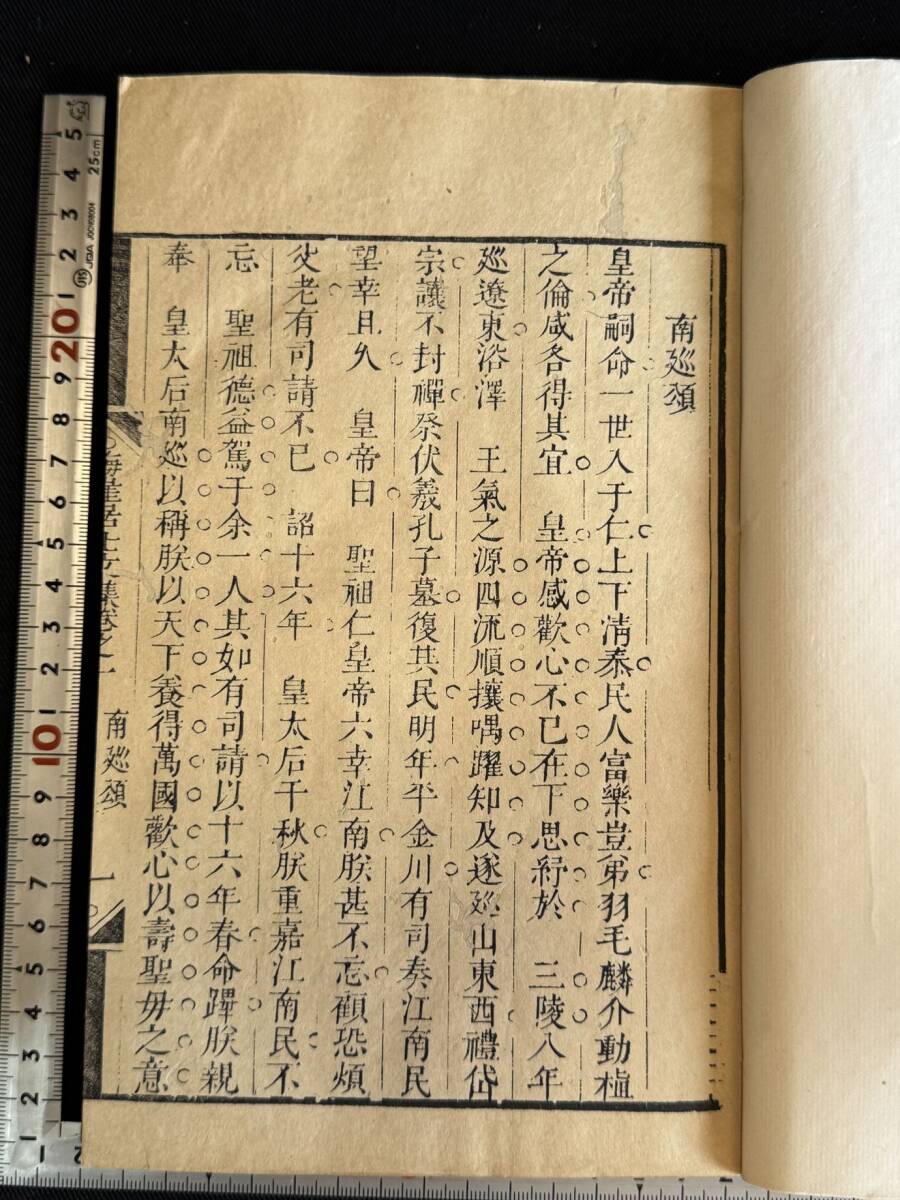 南廵頌
皇帝嗣命一世入于仁上下清泰民人富樂豈弟羽毛麟介動植
之倫咸各得其宜 皇帝感歡心不已在下思紓於 三陵八年
廵遼東浴澤 王氣之源四流順攘喁躍知及遂廵山東西禮岱
宗讓不封禪祭伏羲孔子墓復其民明年平金川有司奏江南民
望幸且久 皇帝曰 聖祖仁皇帝六幸江南朕甚不忘顧恐煩
父老有司請不已 詔十六年 皇太后千秋朕重嘉江南民不
忘 聖祖德益駕于余一人其如有司請以十六年春命蹕朕親
奉 皇太后南廵以稱朕以天下養得萬國歡心以壽聖母之意
海崖居士文集卷之一 南廵頌 一
20
10
25cm